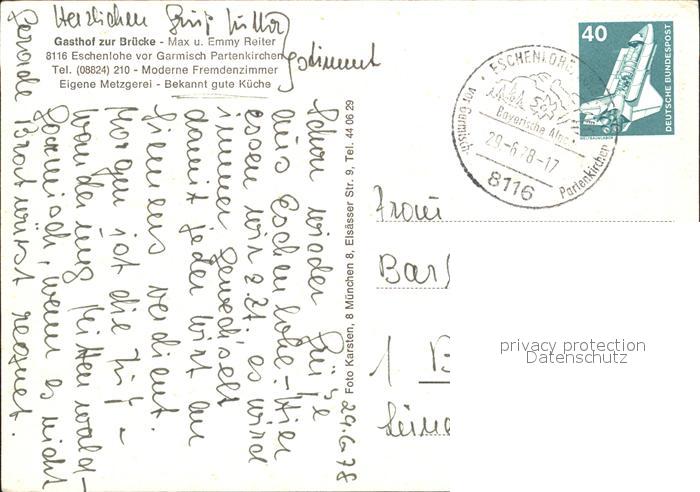 Gasthof zur Brücke - Max u. Emmy Reiter
8116 Eschenlohe vor Garmisch Partenkirchen
Tel. (08824) 210 - Moderne Fremdenzimmer
Eigene Metzgerei - Bekannt gute Küche
29.6.78
Schon wieder Grüße
aus Eschenlohe. - Hier
essen wir z.Zt. es wird
immer gewechselt
damit jeder Wirt an
Siemens verdient.
Morgen ist die
Wanderung Mittenwald-
Garmisch, wenn es nicht
Gerade Bratwürst regnet.
Herzlichen Gruß
Foto Karsten, 8 München 8, Elsässer Str. 9, Tel. 44 06 29
ESCHENLOHE
vor Garmisch
Partenkirchen
Bayerische Alpen
29.-6.78-17
8116
40
DEUTSCHE BUNDESPOST
WELTRAUMLABOR
Frau
Bar
1 B
privacy protection
Datenschutz